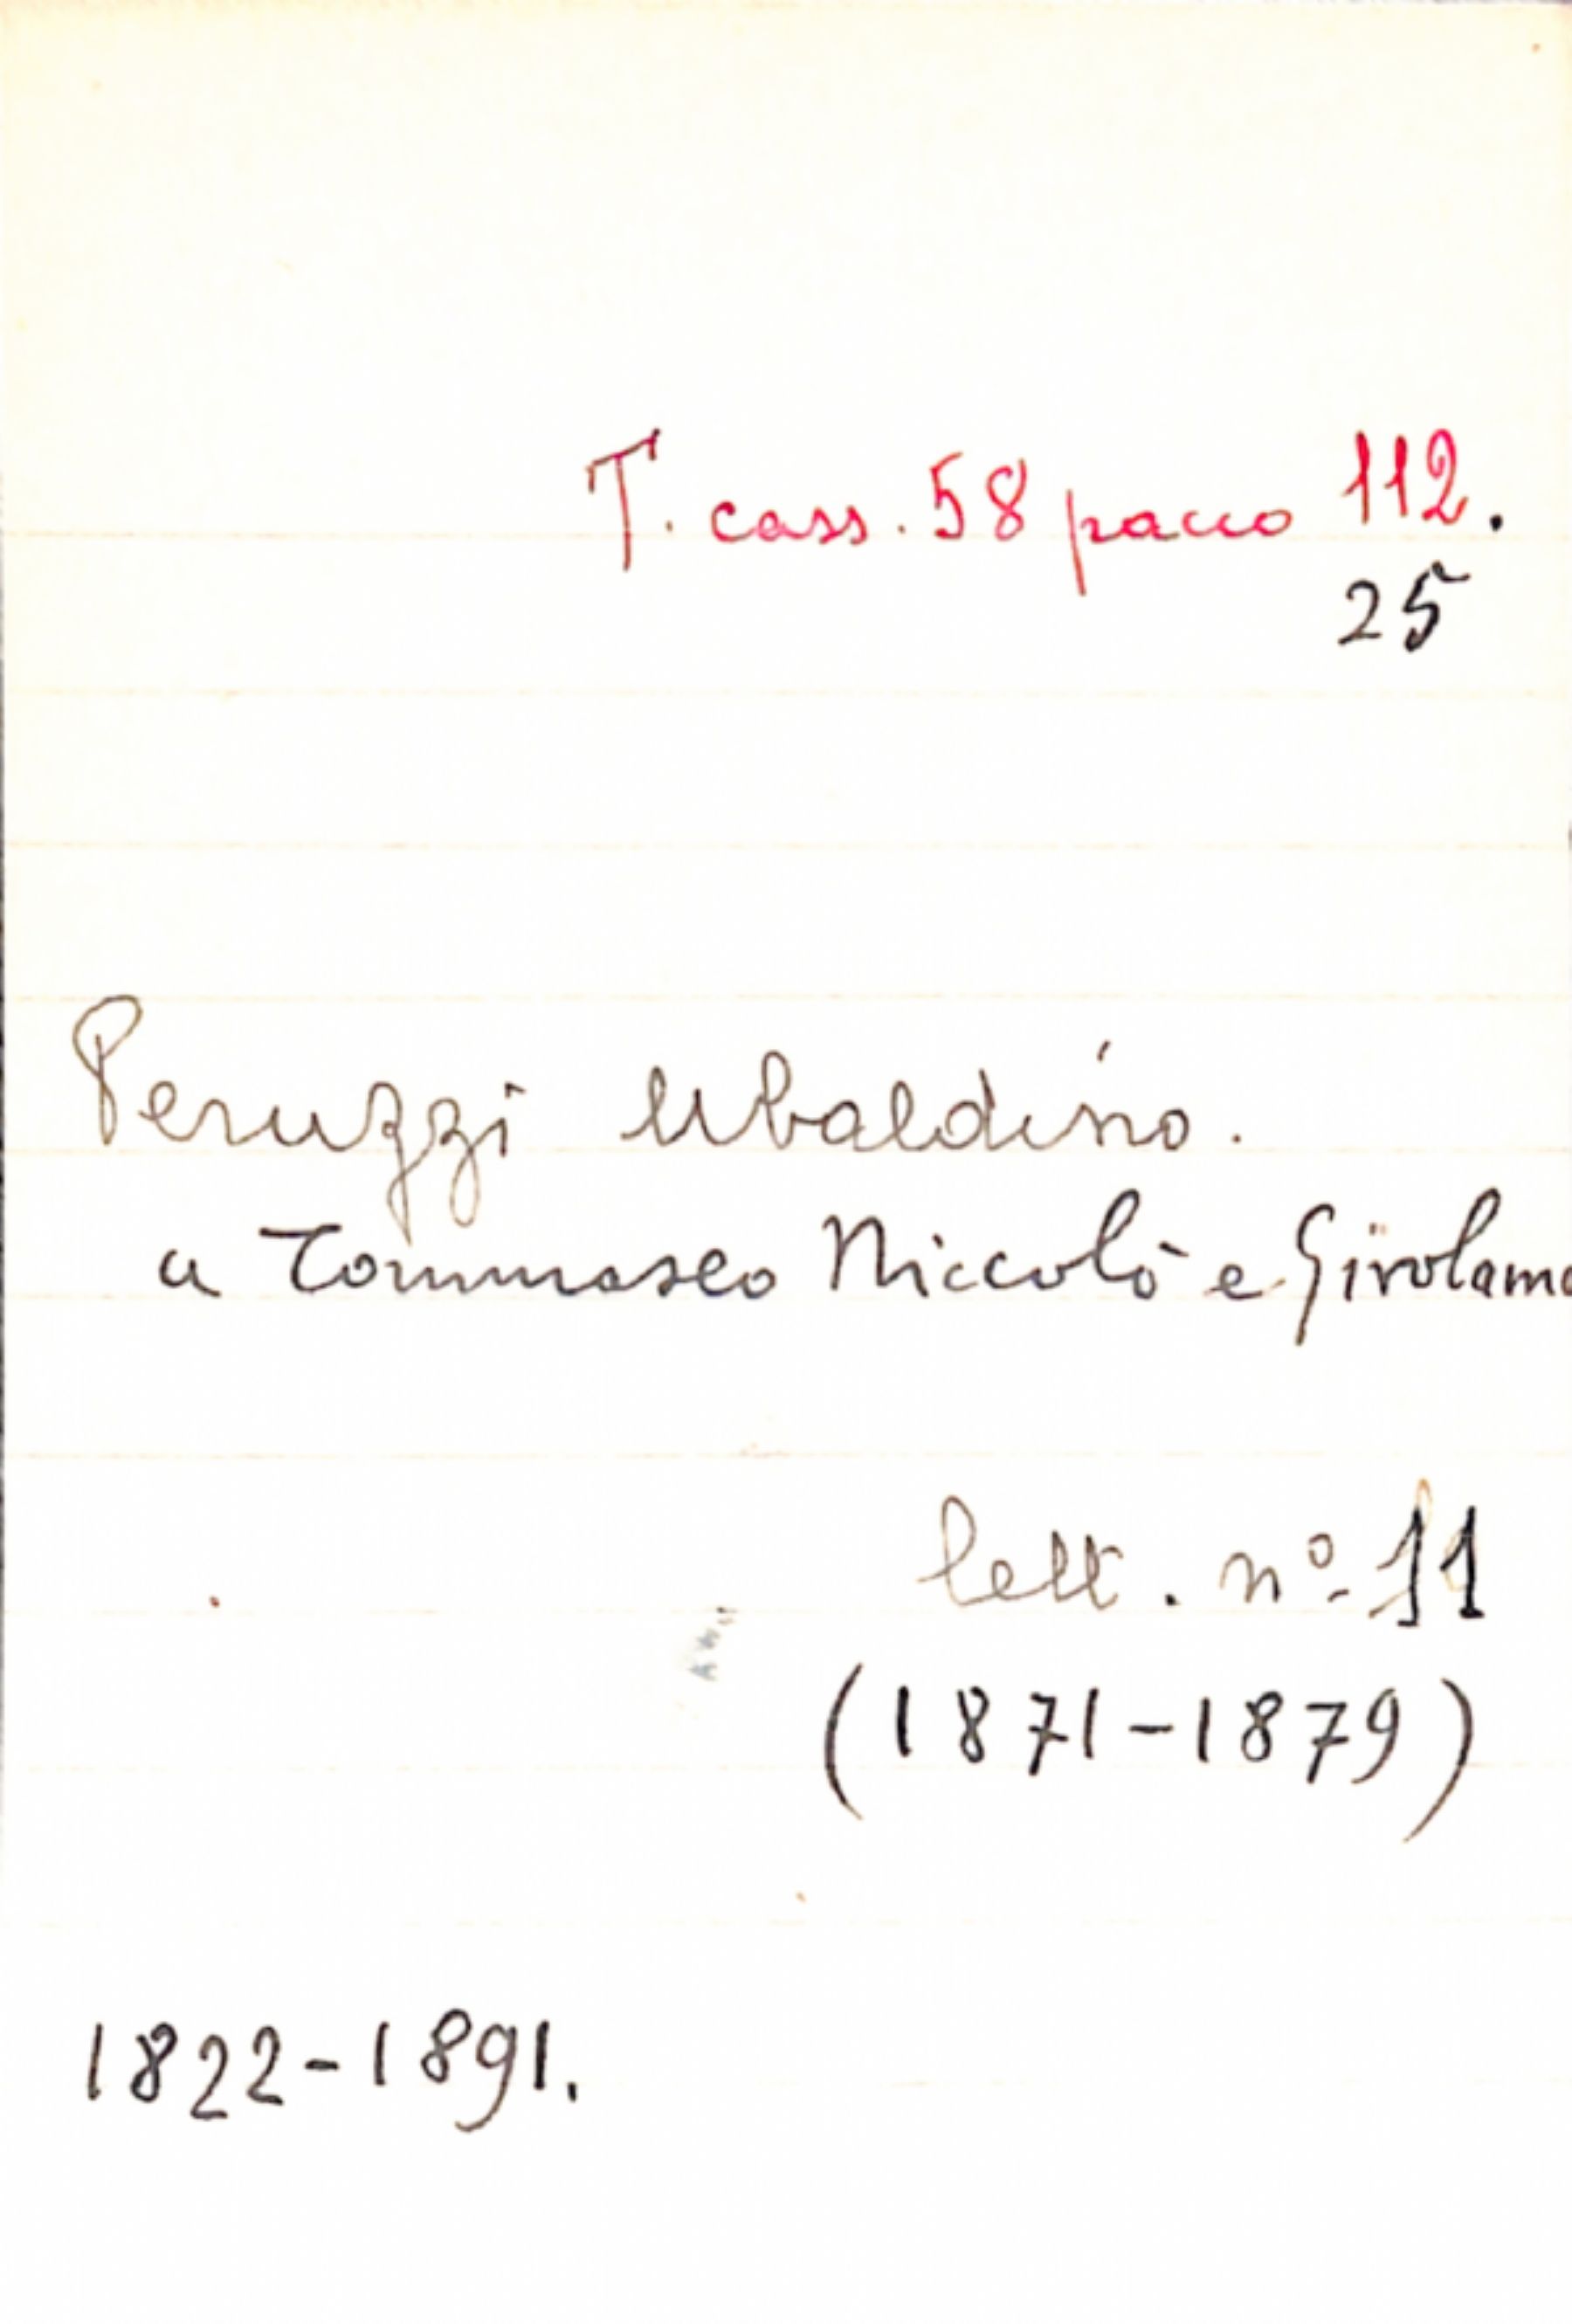 T. cass. 58 pacco 112.
25
Peruzzi Ubaldino.
a Tommaseo Niccolò e Girolamo
lett. nº 11
(1871-1879)
1822-1891.